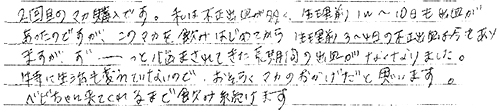 2回目のマカ購入です。私は不正出血が多く、生理前1w〜10日も出血が
あったのですが、このマカを飲みはじめてから生理前3〜4日の不正出血は今もあり
ますが、ず――っと悩まされてきた長期間の出血がなくなりました。
特に生活も変わっていないので、おそらくマカのおかげだと思います。
ベビちゃん来てくれるまで飲み続けます